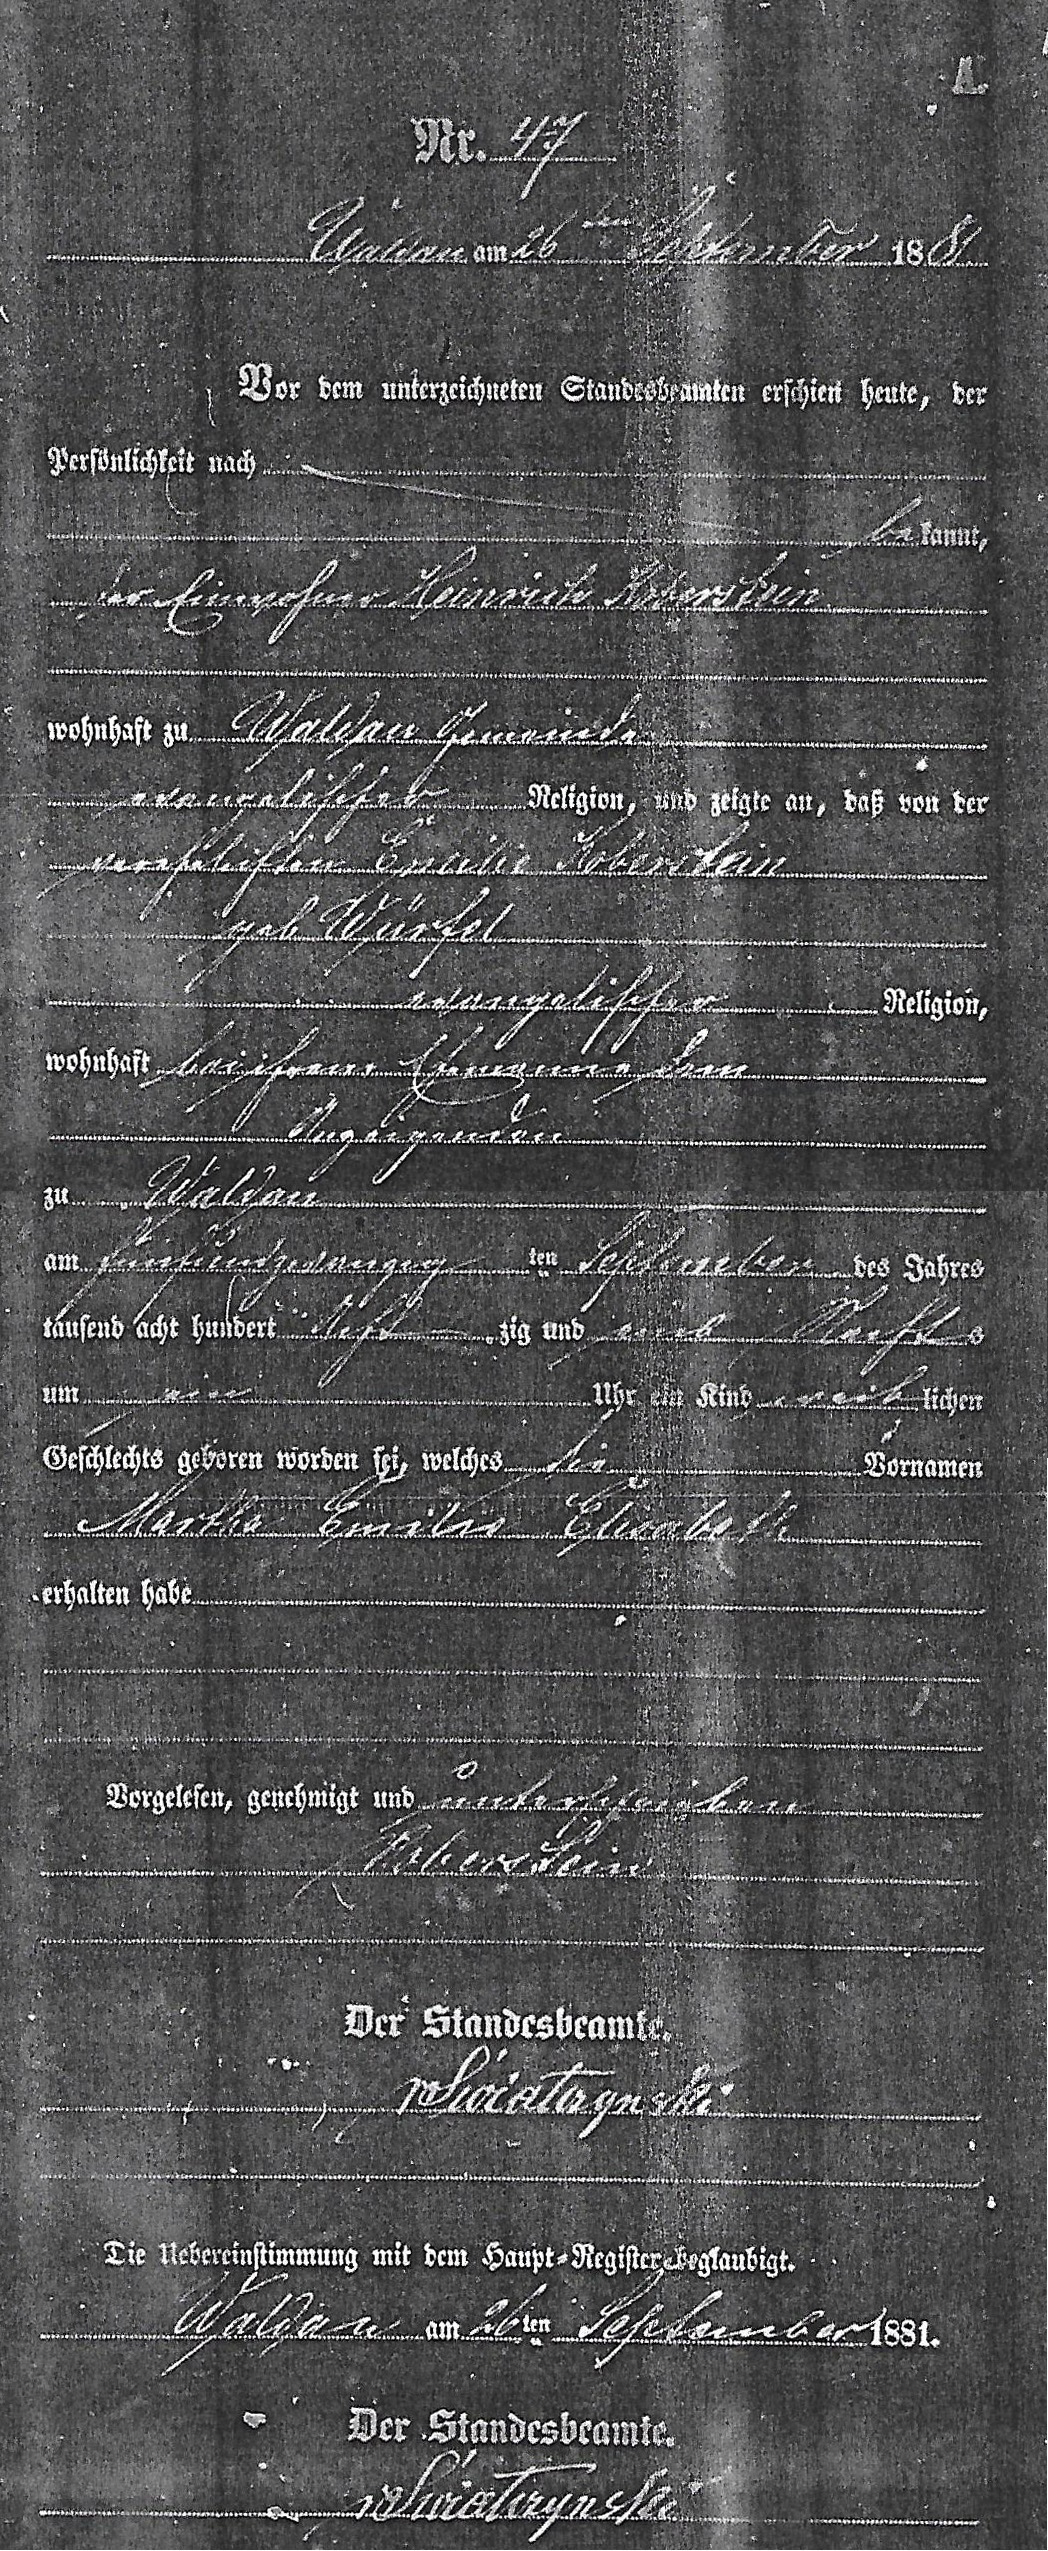 A.
Nr. 47
Waldau am 26ten September 1881.
Vor dem unterzeichneten Standesbeamten erschien heute, der
Persönlichkeit nach
bekannt,
der Einwohner Heinrich Koberstein
wohnhaft zu Waldau Gemeinde
evangelischer Religion, und zeigte an, daß von der
verehelichten Emilie Koberstein
geb Würfel
evangelischer Religion,
wohnhaft bei ihrem Ehemanne dem
Anzeigenden
zu Waldau
am fünfundzwanzigten September des Jahres
tausend acht hundert acht zig und eins Nachts
um ein Uhr ein Kind weiblichen
Geschlechts geboren worden sei, welches die Vornamen
Martha Emilie Elisabeth
erhalten habe
Vorgelesen, genehmigt und unterschrieben
Koberstein
Der Standesbeamte.
Swiatzynski
Die Uebereinstimmung mit dem Haupt-Register beglaubigt.
Waldau am 26ten September 1881.
Der Standesbeamte.
Swiatzynski